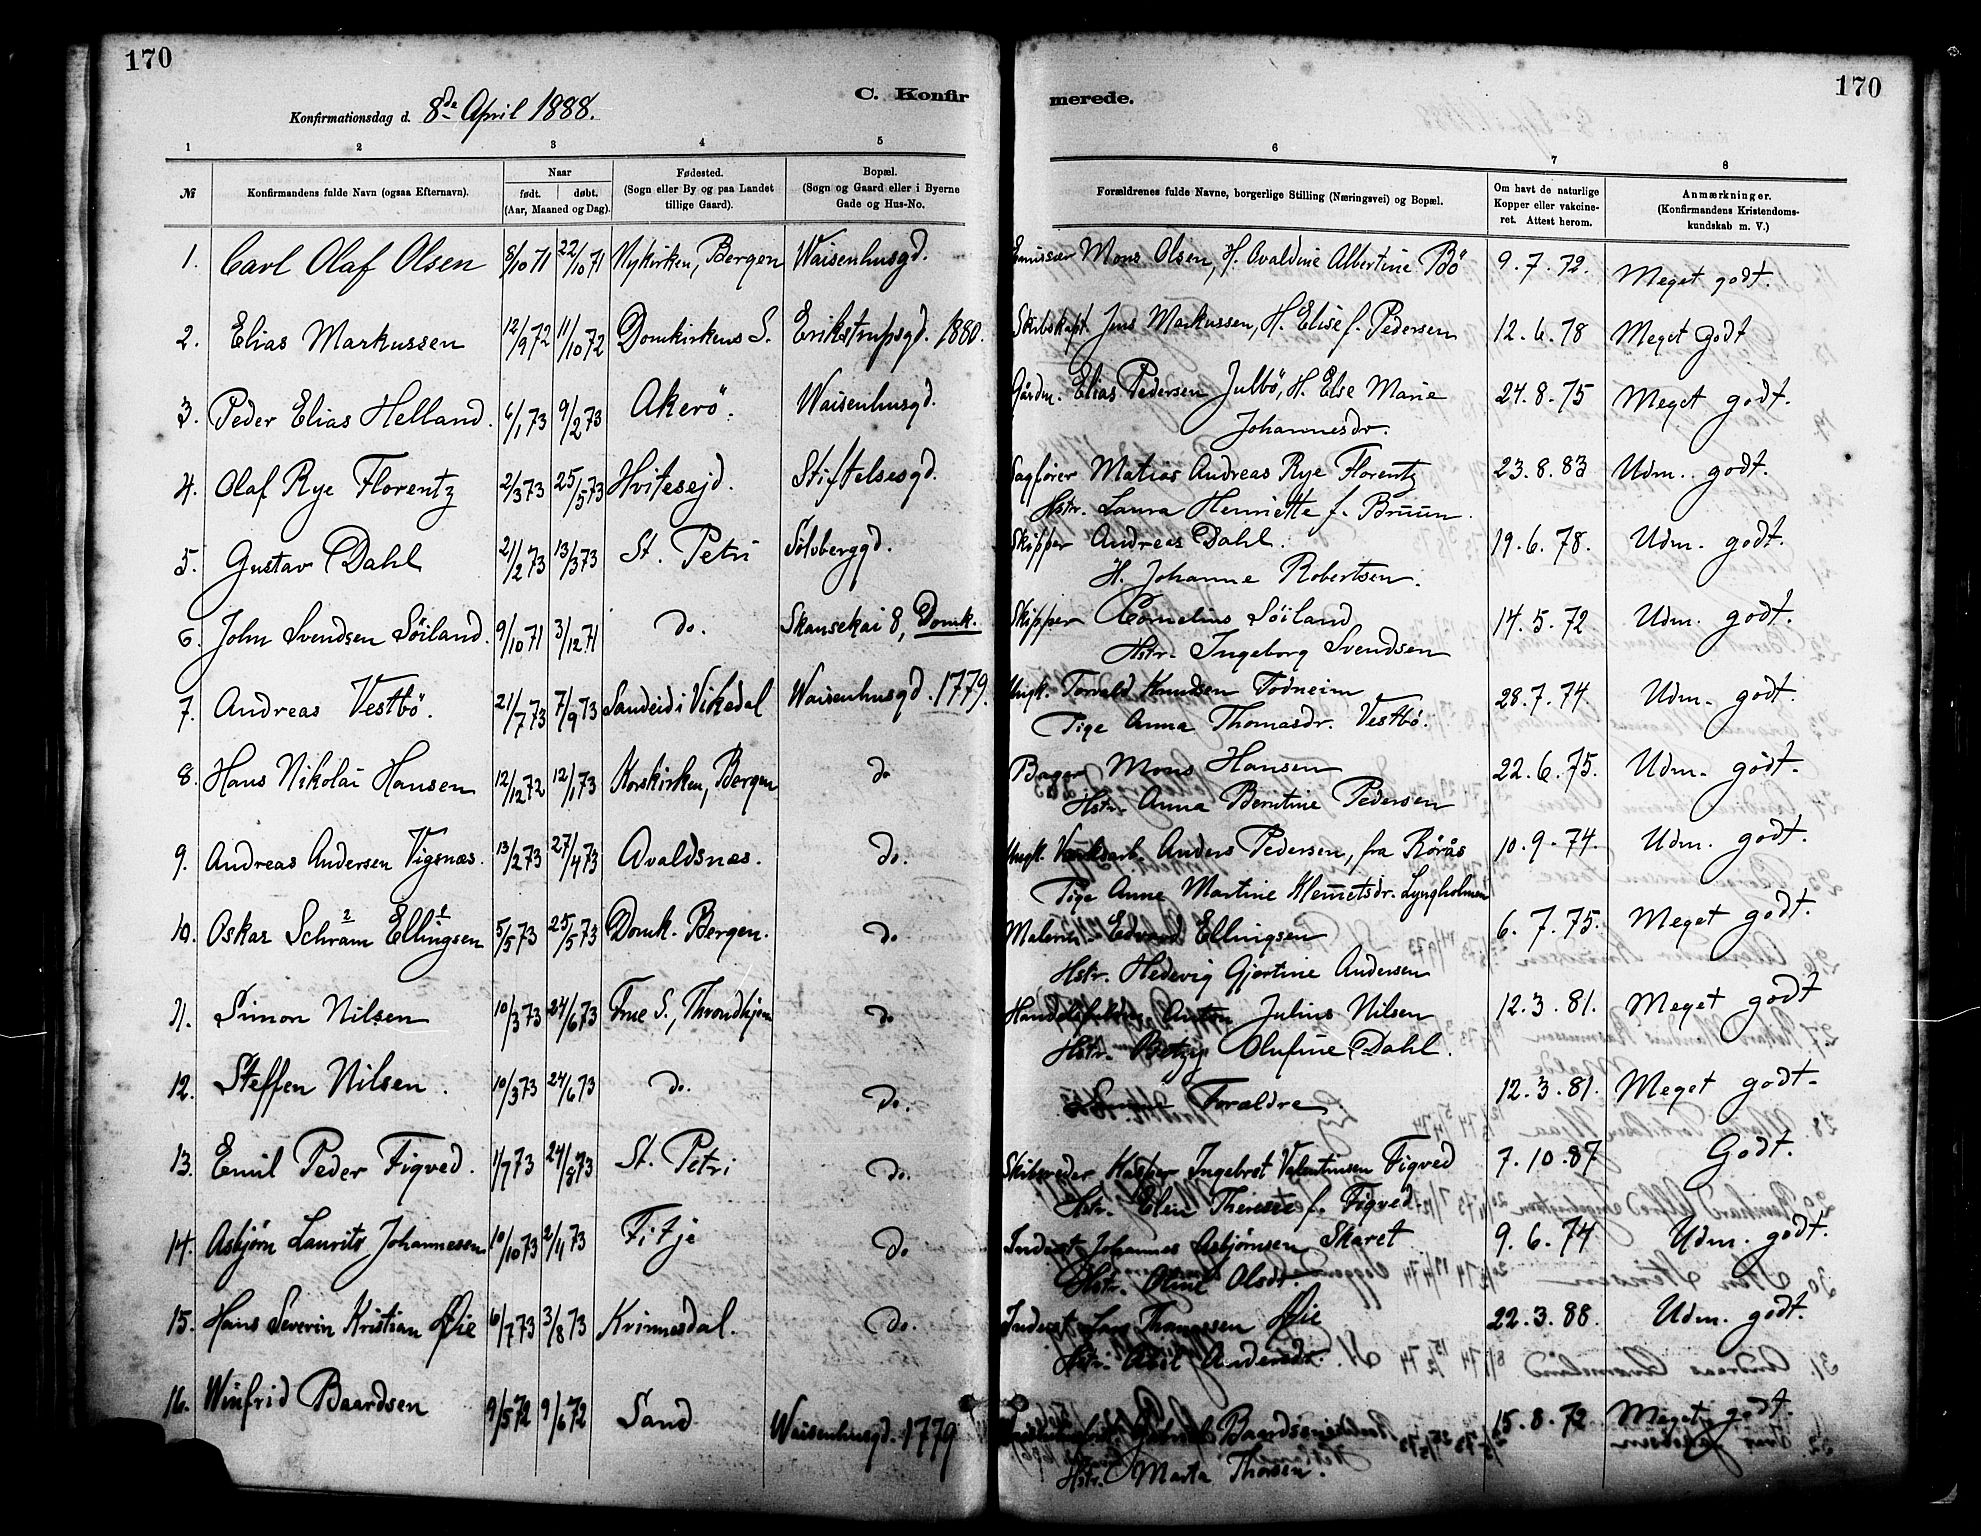 170
C. Konfir merede.
170
Konfirmationsdag d. 8de April 1888.
1 2 3 4 5 6 7 8
№ Konfirmandens fulde Navn (ogsaa Efternavn). Naar født. døbt. (Aar, Maaned og Dag). Fødested. (Sogn eller By og paa Landet tillige Gaard). Bopæl. (Sogn og Gaard eller i Byerne Gade og Hus-No. Forældrenes fulde Navne, borgerlige Stilling (Næringsvei) og Bopæl. Om havt de naturlige Kopper eller vakcineret. Attest herom. Anmærkninger. (Konfirmandens Kristendomskundskab m. V.)
1. Carl Olaf Olsen 8/10 71 22/10 71 Nykirken, Bergen Waisenhusgd. Mons Olsen, H. Avaldine Albertine Bö 9.7.72. Meget godt.
2. Elias Markussen 12/9 72 11/10 72 Domkirkens S. Erikstrupsgd. 1880. Skibskapt. Jens Markussen, H. Elise f. Pedersen 12.6.78 Meget godt
3. Peder Elias Helland. 6/1 73 9/2 73 Akerö. Waisenhusgd. Gårdm. Elias Pedersen Julbö, H. Else Marie 24.8.75 Meget godt.
Johannesdr.
4. Olaf Rye Florentz 2/3 73 25/5 73 Hvitesejd. Stiftelsesgd. Sagfører Matias Andreas Rye Florentz 23.8.83 Udm. godt.
Hstr. Laura Henriette f. Bruun.
5. Gustav Dahl 21/2 73 13/3 73 St. Petri Sølvberggd. Skipper Andreas Dahl. 19.6.78. Udm. godt.
H. Johanne Robertsen.
6. John Svendsen Söiland. 9/10 71 3/12 71 do. Skansekai 8, Domk. Skipper Cornelius Söiland 14.5.72 Udm. godt.
Hstr. Ingeborg Svendsen
7. Andreas Vestbö. 21/7 73 7/9 73 Sandeid i Vikedal Waisenhusgd. 1779. Ungk. Torvald Knudsen Todneim 28.7.74. Udm. godt.
Pige Anna Thomasdr. Vestbö.
8. Hans Nikolai Hansen 12/12 72 12/1 73 Korskirken, Bergen do Bager Mons Hansen 22.6.75. Udm. godt.
Hstr. Anna Berntine Pedersen
9. Andreas Andersen Vigsnæs. 13/2 73 27/4 73 Avaldsnæs. do. Ungk. Anders Pedersen, fra Rörås 10.9.74. Udm. godt.
Pige Anne Martine Lyngholmen
10. Oskar Schram Ellingsen 5/5 73 25/5 73 Domk. Bergen. do Malerm. Edvard Ellingsen 6.7.75. Meget godt.
Hstr. Hedevig Gjertine Andersen
11. Simon Nilsen 10/3 73 24/6 73 Frue S., Throndhjem do Anton Julius Nilsen 12.3.81. Meget godt
Hstr. Betzy Olufine Dahl.
12. Steffen Nilsen. 10/3 73 24/6 73 do. do. Forældre 12.3.81. Meget godt.
13. Emil Peder Figved. 1/7 73 24/8 73 St. Petri do. Skibsreder Kasper Ingebret Valentinsen Figved 7.10.87 Godt.
Hstr. Elen Therese f. Figved.
14. Asbjørn Laurits Johannesen 10/10 73 2/4 73 Fitje do Inderst Johannes Asbjørnsen Skaret 9.6.74 Udm. godt.
Hstr. Oline Olsdr.
15. Hans Severin Kristian Øie 6/7 73 3/8 73 Kvinnesdal. do. Inderst Lars Thomassen Øie 22.3.88. Udm. godt.
Hstr. Abel Andersdr.
16. Winfrid Baardsen 9/5 72 9/6 72 Sand Waisenhusgd. 1779 Baardsen 15.8.72 Meget godt.
Hstr. Marta Thorsen.